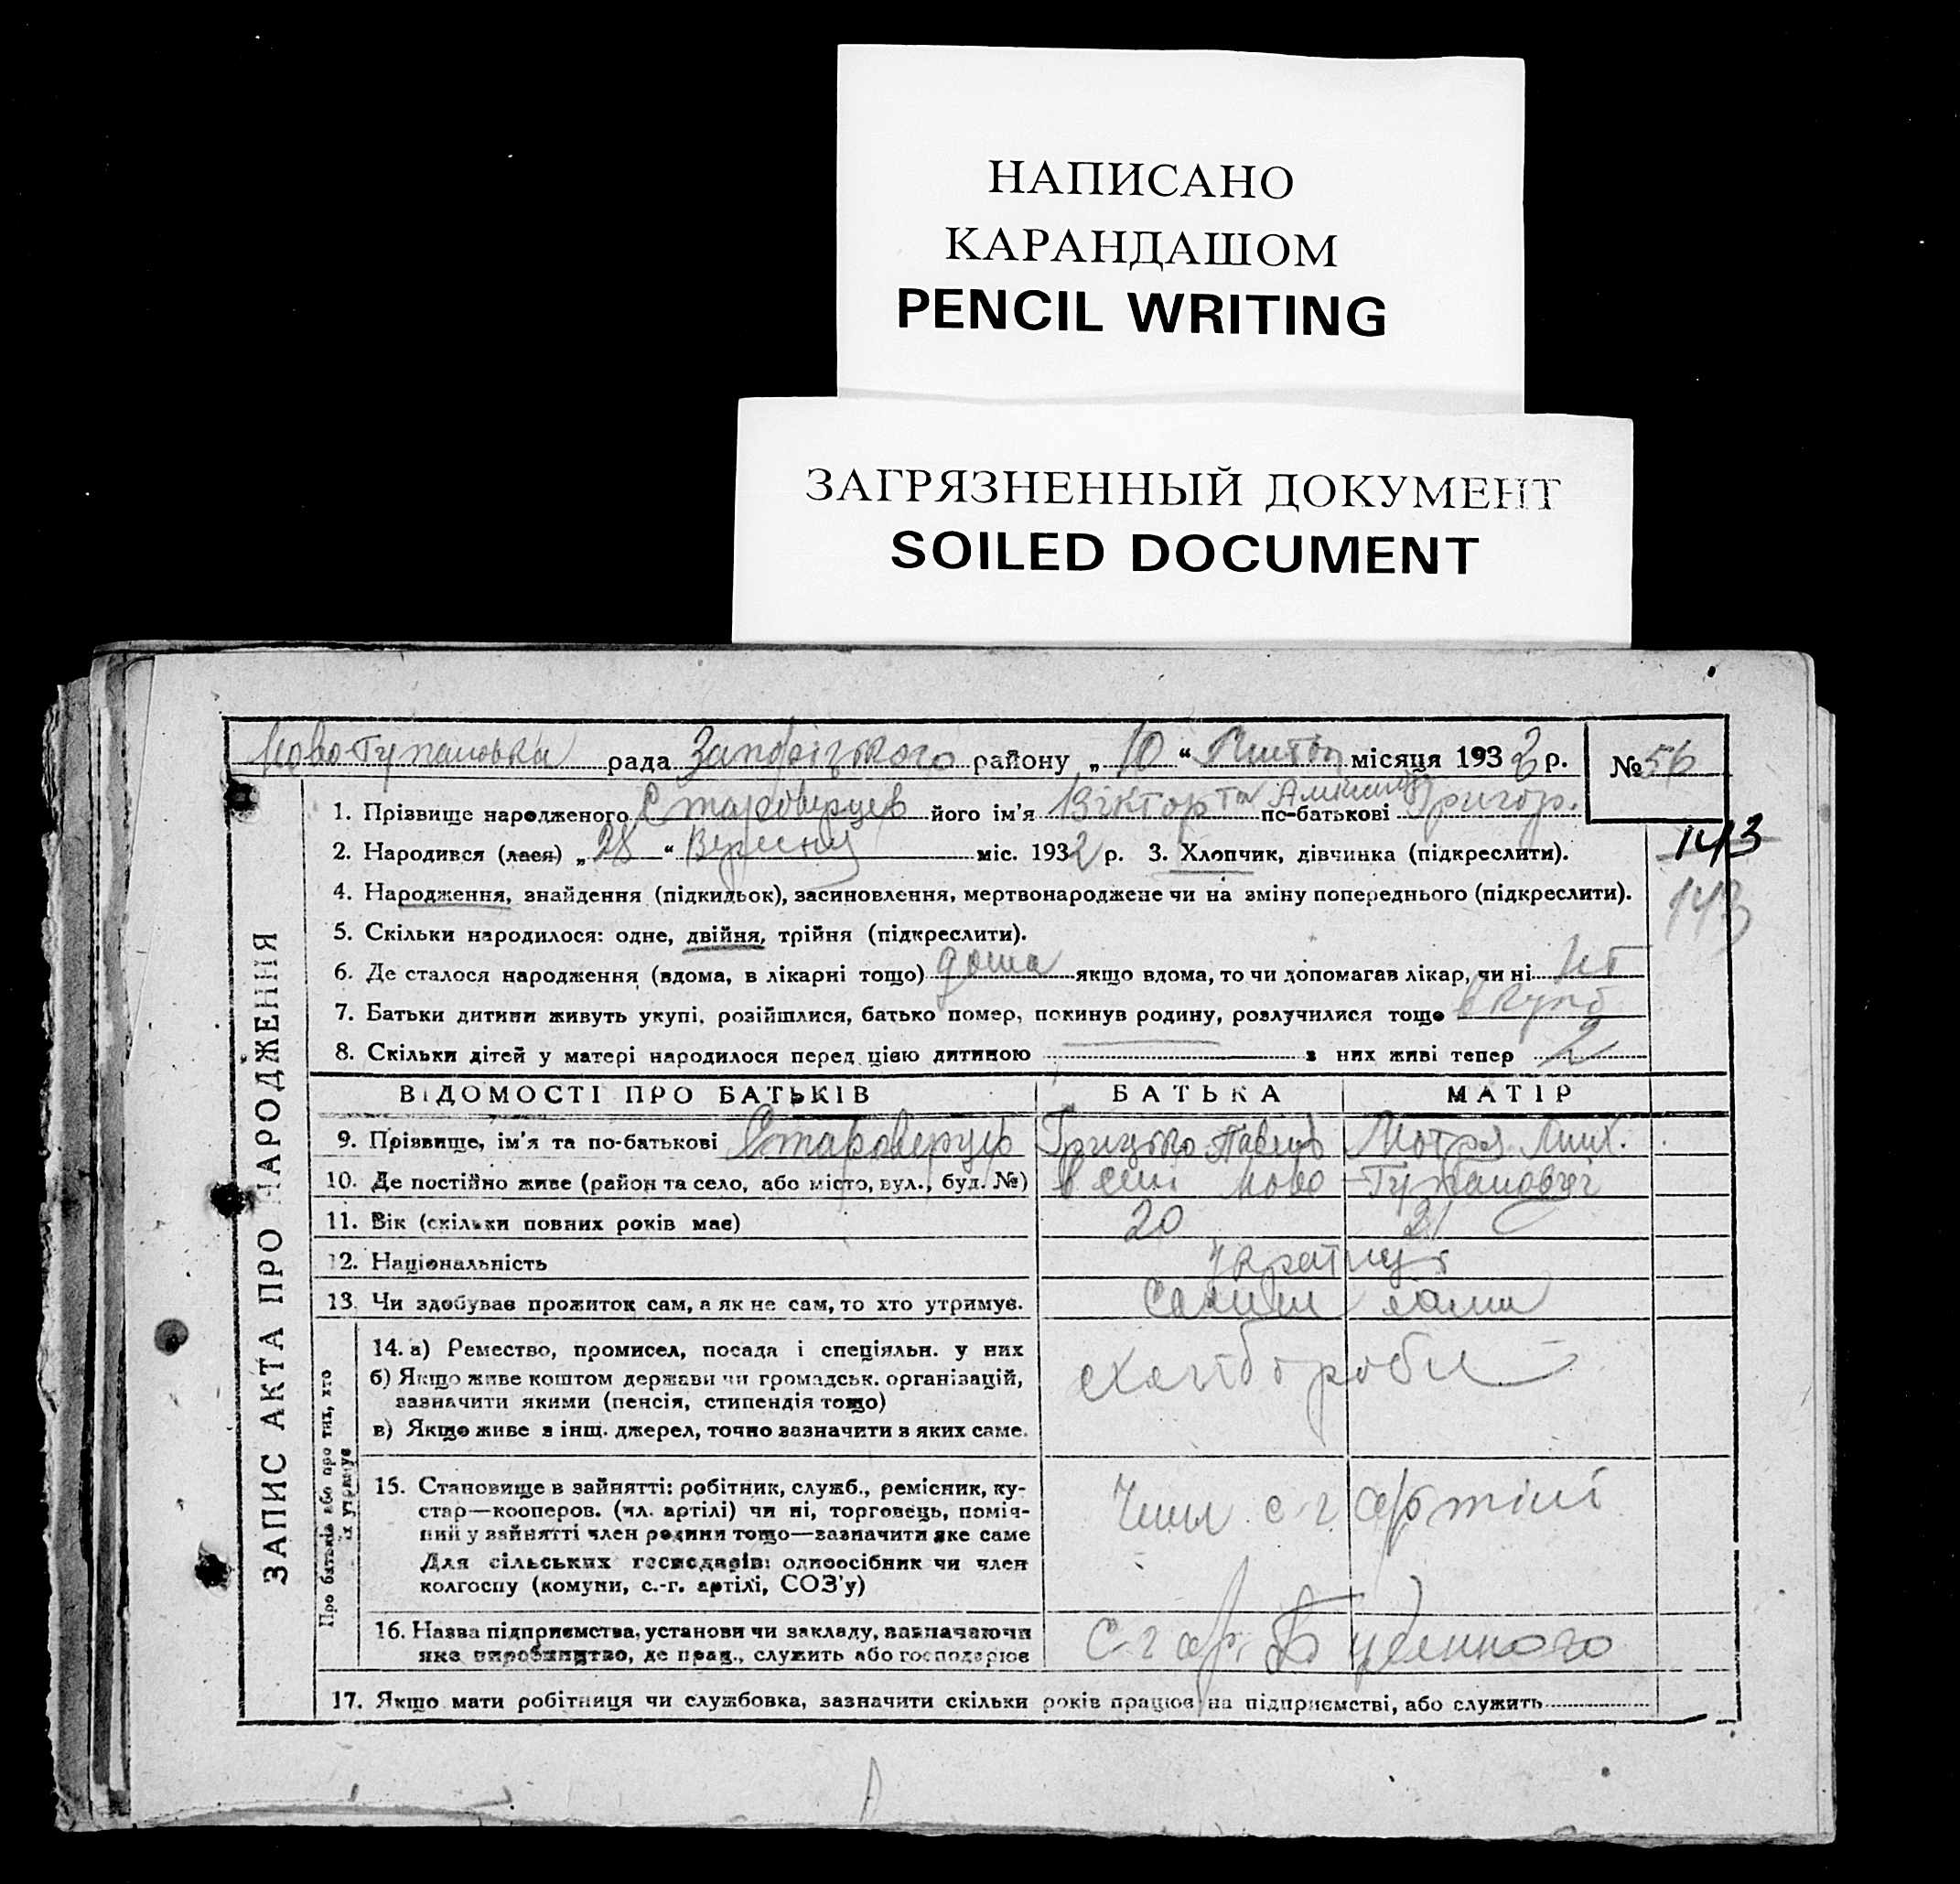 НАПИСАНО
КАРАНДАШОМ
PENCIL WRITING
ЗАГРЯЗНЕННЫЙ ДОКУМЕНТ
SOILED DOCUMENT
рада району „ 10 “ місяця 1932 р. № 56
1. Прізвище народженого Староверцев його ім'я Віктор та по-батькові Григор.
2. Народився (лася) „ 28 “ Вересня міс. 1932 р. 3. Хлопчик, дівчинка (підкреслити).
143
4. Народження, знайдення (підкидьок), засиновлення, мертвонароджене чи на зміну попереднього (підкреслити).
143
5. Скільки народилося: одне, двійня, трійня (підкреслити).
6. Де сталося народження (вдома, в лікарні тощо) дома якщо вдома, то чи допомагав лікар, чи ні
7. Батьки дитини живуть укупі, розійшлися, батько помер, покинув родину, розлучилися тощо
8. Скільки дітей у матері народилося перед цією дитиною з них живі тепер 2
ЗАПИС АКТА ПРО НАРОДЖЕННЯ
ВІДОМОСТІ ПРО БАТЬКІВ БАТЬКА МАТІР
9. Прізвище, ім'я та по-батькові Староверцев Грицько Мотря
10. Де постійно живе (район та село, або місто, вул., буд. №) в селі Ново-
11. Вік (скільки повних років має) 20 21
12. Національність
13. Чи здобував прожиток сам, а як не сам, то хто утримує. сами
Про батьків або про тих, хто їх утримує
14. а) Ремество, промисел, посада і спеціяльн. у них
б) Якщо живе коштом держави чи громадськ. організацій,
зазначити якими (пенсія, стипендія тощо)
в) Якщо живе з інш. джерел, точно зазначити з яких саме.
хлібороби
15. Становище в зайнятті: робітник, служб., ремісник, ку-
стар—кооперов. (чл. артілі) чи ні, торговець, поміч-
ний у зайнятті член родини тощо—зазначити яке саме
Для сільських господарів: одноосібник чи член
колгоспу (комуни, с.-г. артілі, СОЗ'у)
Член с-г артілі
16. Назва підприємства, установи чи закладу, зазначаючи
яке виробництво, де прац., служить або господарює
с-г ар. Буденного
17. Якщо мати робітниця чи службовка, зазначити скільки років працює на підприємстві, або служить